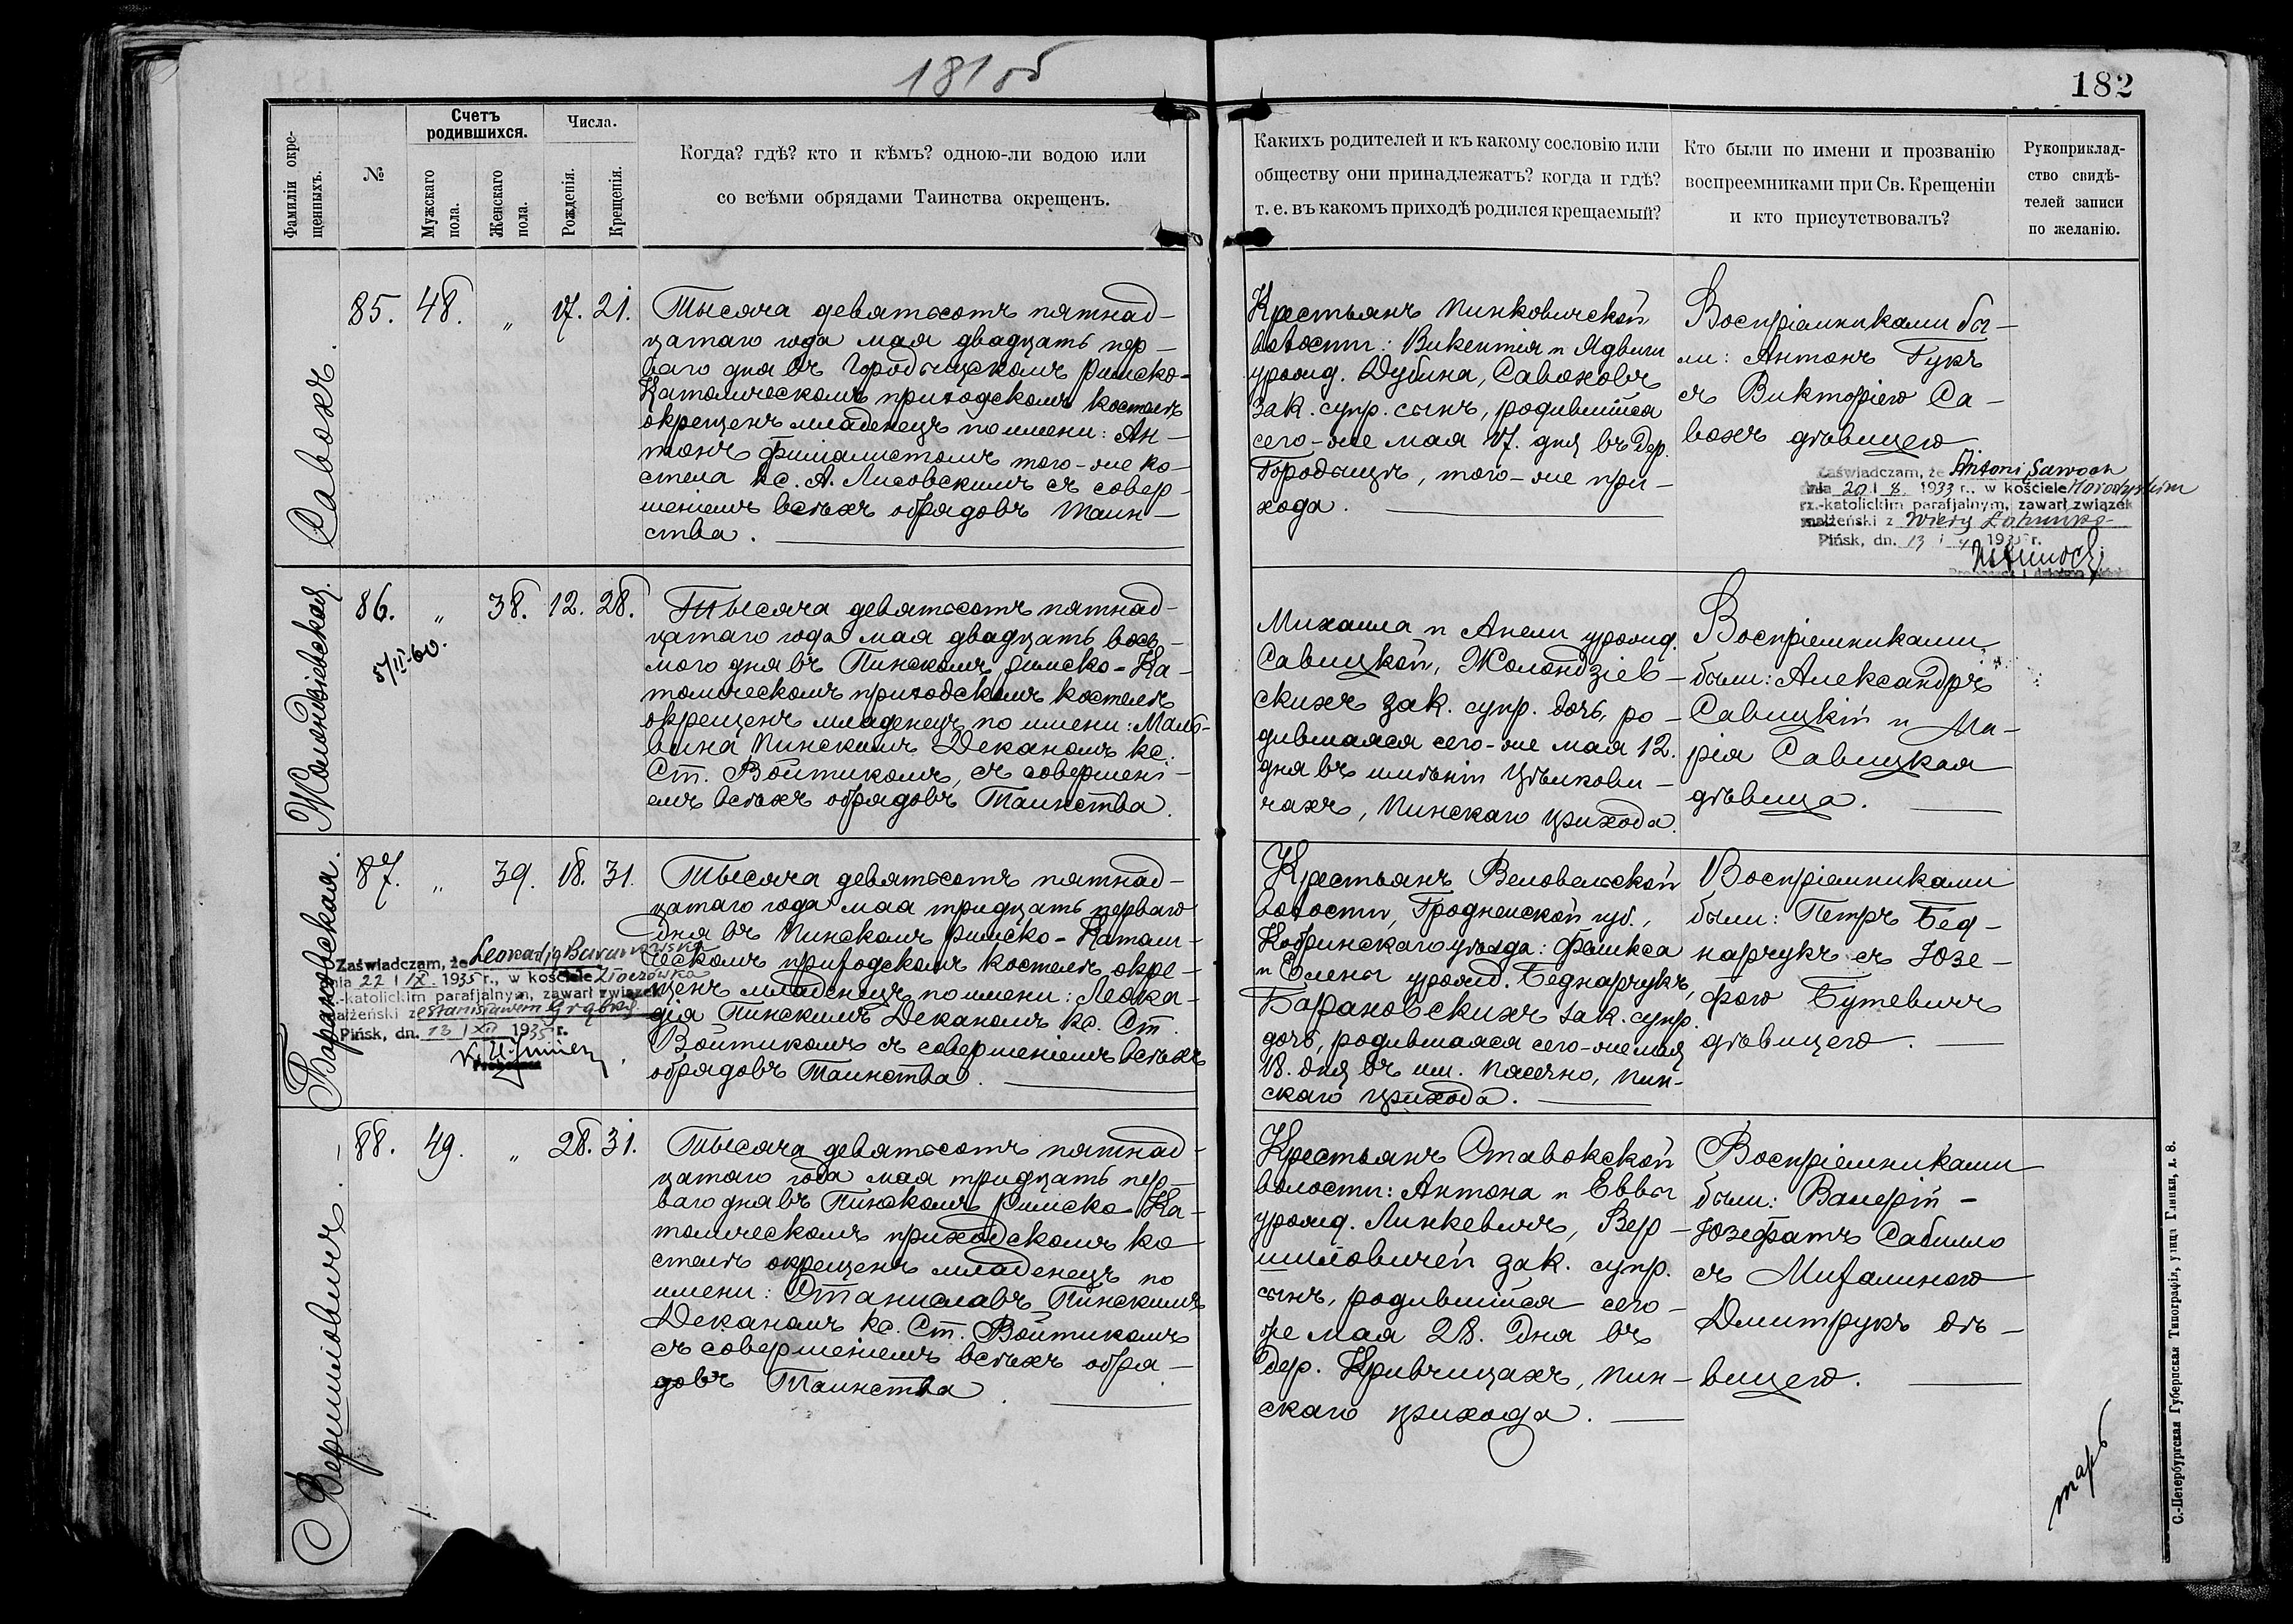 181 об
182
Фамиліи окре-
щенныхъ.
№
Счетъ
родившихся.
Мужскаго
пола.
Женскаго
пола.
Числа.
Рожденія.
Крещенія.
Когда? гдѣ? кто и кѣмъ? одною-ли водою или
со всѣми обрядами Таинства окрещенъ.
Какихъ родителей и къ какому сословію или
обществу они принадлежатъ? когда и гдѣ?
т. е. въ какомъ приходѣ родился крещаемый?
Кто были по имени и прозванію
воспреемниками при Св. Крещеніи
и кто присутствовалъ?
Рукоприклад-
ство свидѣ-
телей записи
по желанію.
Савохъ.
85. 48. " 17. 21.
Тысяча девятьсотъ пятнад-
цатаго года мая двадцать пер-
ваго дня въ Городыщскомъ римско-
Католическомъ приходскомъ костелѣ
окрещенъ младенецъ по имени: Ан-
тонъ филіалистомъ того-же ко-
стела кс. А. Лисовскимъ съ совер-
шеніемъ всѣхъ обрядовъ Таин-
ства.
Крестьянъ Пинковичской
волости: Викентія и Ядвиги
урожд. Дубина, Савоховъ
зак. супр. сынъ, родившійся
сего-же мая 17. дня въ дер.
Городыщѣ, того-же при-
хода.
Воспріемниками бы-
ли: Антонъ Гукъ
съ Викторіею Са-
вохъ дѣвицею
Zaświadczam, że Antoni Sawoch
dnia 20 I 8 1933 r., w kościele Horodyskim
rz.-katolickim parafjalnym, zawarł związek
małżeński z
Pińsk, dn. 13
Жолондзіевская.
86. " 38. 12. 28.
5/II 60.
Тысяча девятьсотъ пятнад-
цатаго года мая двадцать вось-
мого дня въ Пинскомъ римско-Ка-
толическомъ приходскомъ костелѣ
окрещенъ младенецъ по имени: Маль-
вина Пинскимъ Деканомъ кс.
Ст. Войтикомъ, съ совершені-
емъ всѣхъ обрядовъ Таинства.
Михаила и Анели урожд.
Савицкой, Жолондзіев-
скихъ зак. супр. дочь, ро-
дившаяся сего-же мая 12.
дня въ имѣніи Цѣлкови-
чахъ, Пинскаго прихода.
Воспріемниками
были: Александръ
Савицкій и Ма-
рія Савицкая
дѣвица.
Барановская.
87. " 39. 18. 31.
Тысяча девятьсотъ пятнад-
цатаго года мая тридцать перваго
дня въ Пинскомъ римско-Католи-
ческомъ приходскомъ костелѣ окре-
щенъ младенецъ по имени: Леока-
дія Пинскимъ Деканомъ кс. Ст.
Войтикомъ съ совершеніемъ всѣхъ
обрядовъ Таинства.
Zaświadczam, że Leokadja Baranowska
dnia 22 I IX 1935 r., w kościele
-katolickim parafjalnym, zawarł związek
małżeński z Stanisławem
Pińsk, dn. 13 I XII 1935 r.
Крестьянъ Веловельской
волости, Гродненской губ.,
Кобринскаго уѣзда: Феликса
и Елены урожд. Беднарчукъ,
Барановскихъ зак. супр.
дочь, родившаяся сего-же мая
18. дня въ им. Пасѣчно, Пин-
скаго прихода.
Воспріемниками
были: Петръ Бед-
нарчукъ съ Юзе-
фою Бутевичъ
дѣвицею.
Вершиловичъ.
88. 49. " 28. 31.
Тысяча девятьсотъ пятнад-
цатаго года мая тридцать пер-
ваго дня въ Пинскомъ римско-Ка-
толическомъ приходскомъ ко-
стелѣ окрещенъ младенецъ по
имени: Станиславъ Пинскимъ
Деканомъ кс. Ст. Войтикомъ
съ совершеніемъ всѣхъ обря-
довъ Таинства.
Крестьянъ Ставокской
волости: Антона и Еввы
урожд. Линкевичъ, Вер-
шиловичей зак. супр.
сынъ, родившійся сего-
же мая 28. дня въ
дер. Кривчицахъ, Пин-
скаго прихода.
Воспріемниками
были: Валерій-
Юзефатъ Сабилло
съ Михалиною
Дмитрукъ дѣ-
вицею.
С.-Петербургская Губернская Типографія, улица Глинки, д. 8.